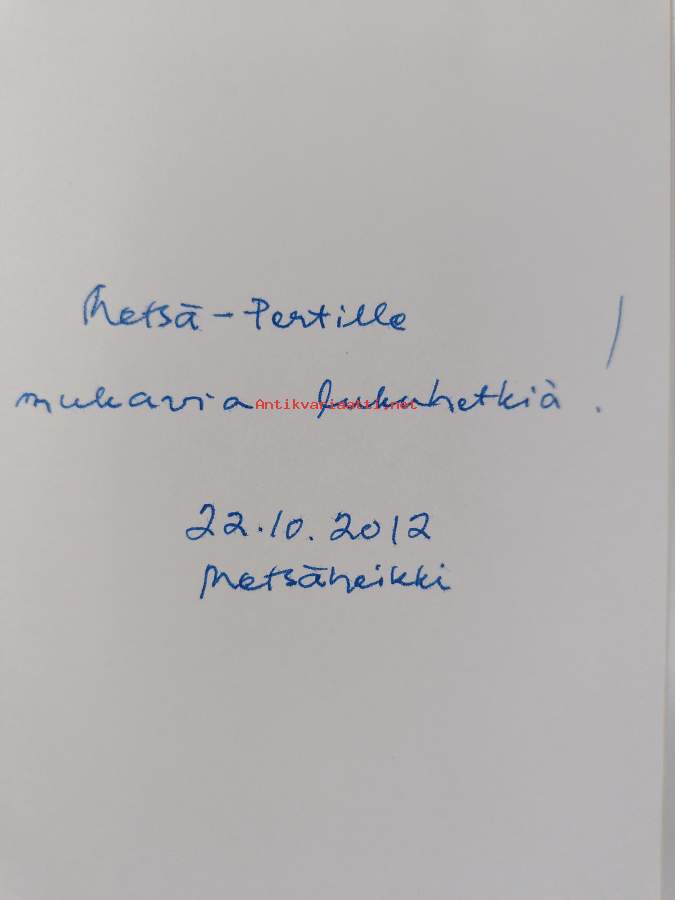 Metsä-Pertille
mukavia lukuhetkiä!
Antikvariaatti.net
22.10.2012
Metsäheikki